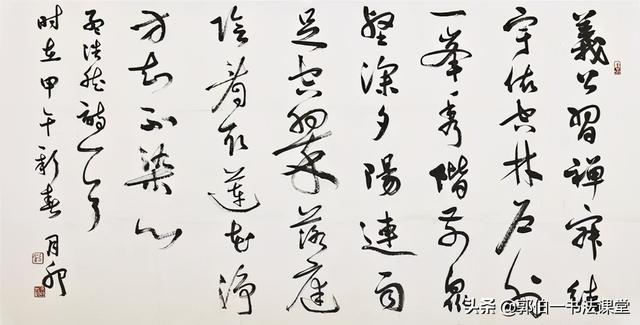 義公習禪寂結
宇依空林户外
一峯秀階前眾
壑深夕陽連雨
足空翠落庭
陰看取蓮花淨
方知不染心
孟浩然詩一首
时在甲午新春
头条 @郭伯一书法课堂